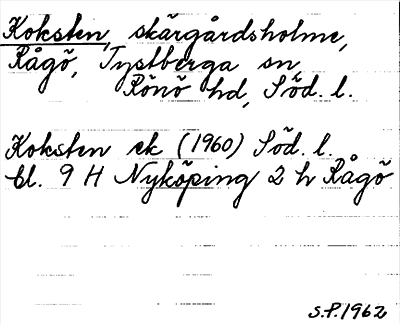 Koksten, skärgårdsholme,
Rågö, Tystberga sn
Rönö hd, Söd. l.
Koksten ek (1960) Söd. l.
bl. 9 H Nyköping 2 h Rågö
S.P. 1962